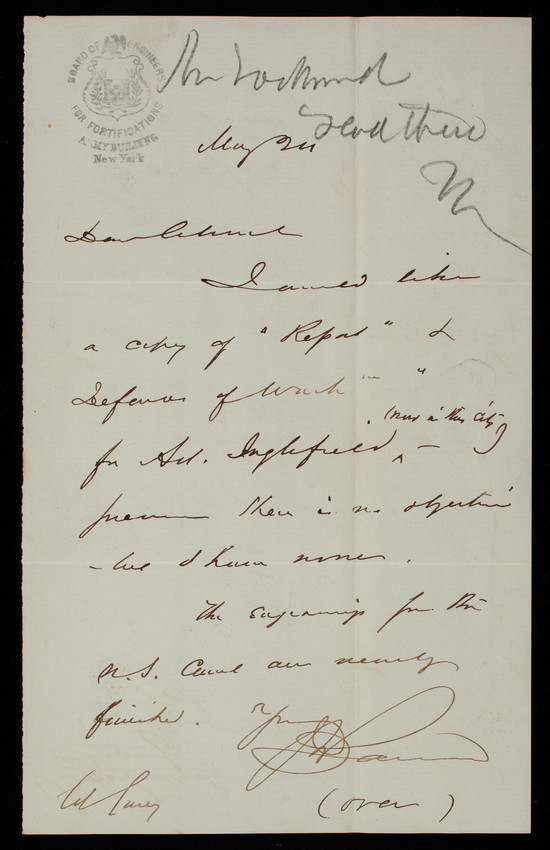 BOARD OF ENGINEERS
FOR FORTIFICATIONS
ARMY BUILDING
New York
Send three
May 24
Dear Colonel
I would like
a copy of "Report" &
Defences of Wash"
(now in this city)
for Ad. Inglefield —
presume there is no objection
I have none.
The engravings for the
N.S. are nearly
finished. Yrs
Col Casey
(over)